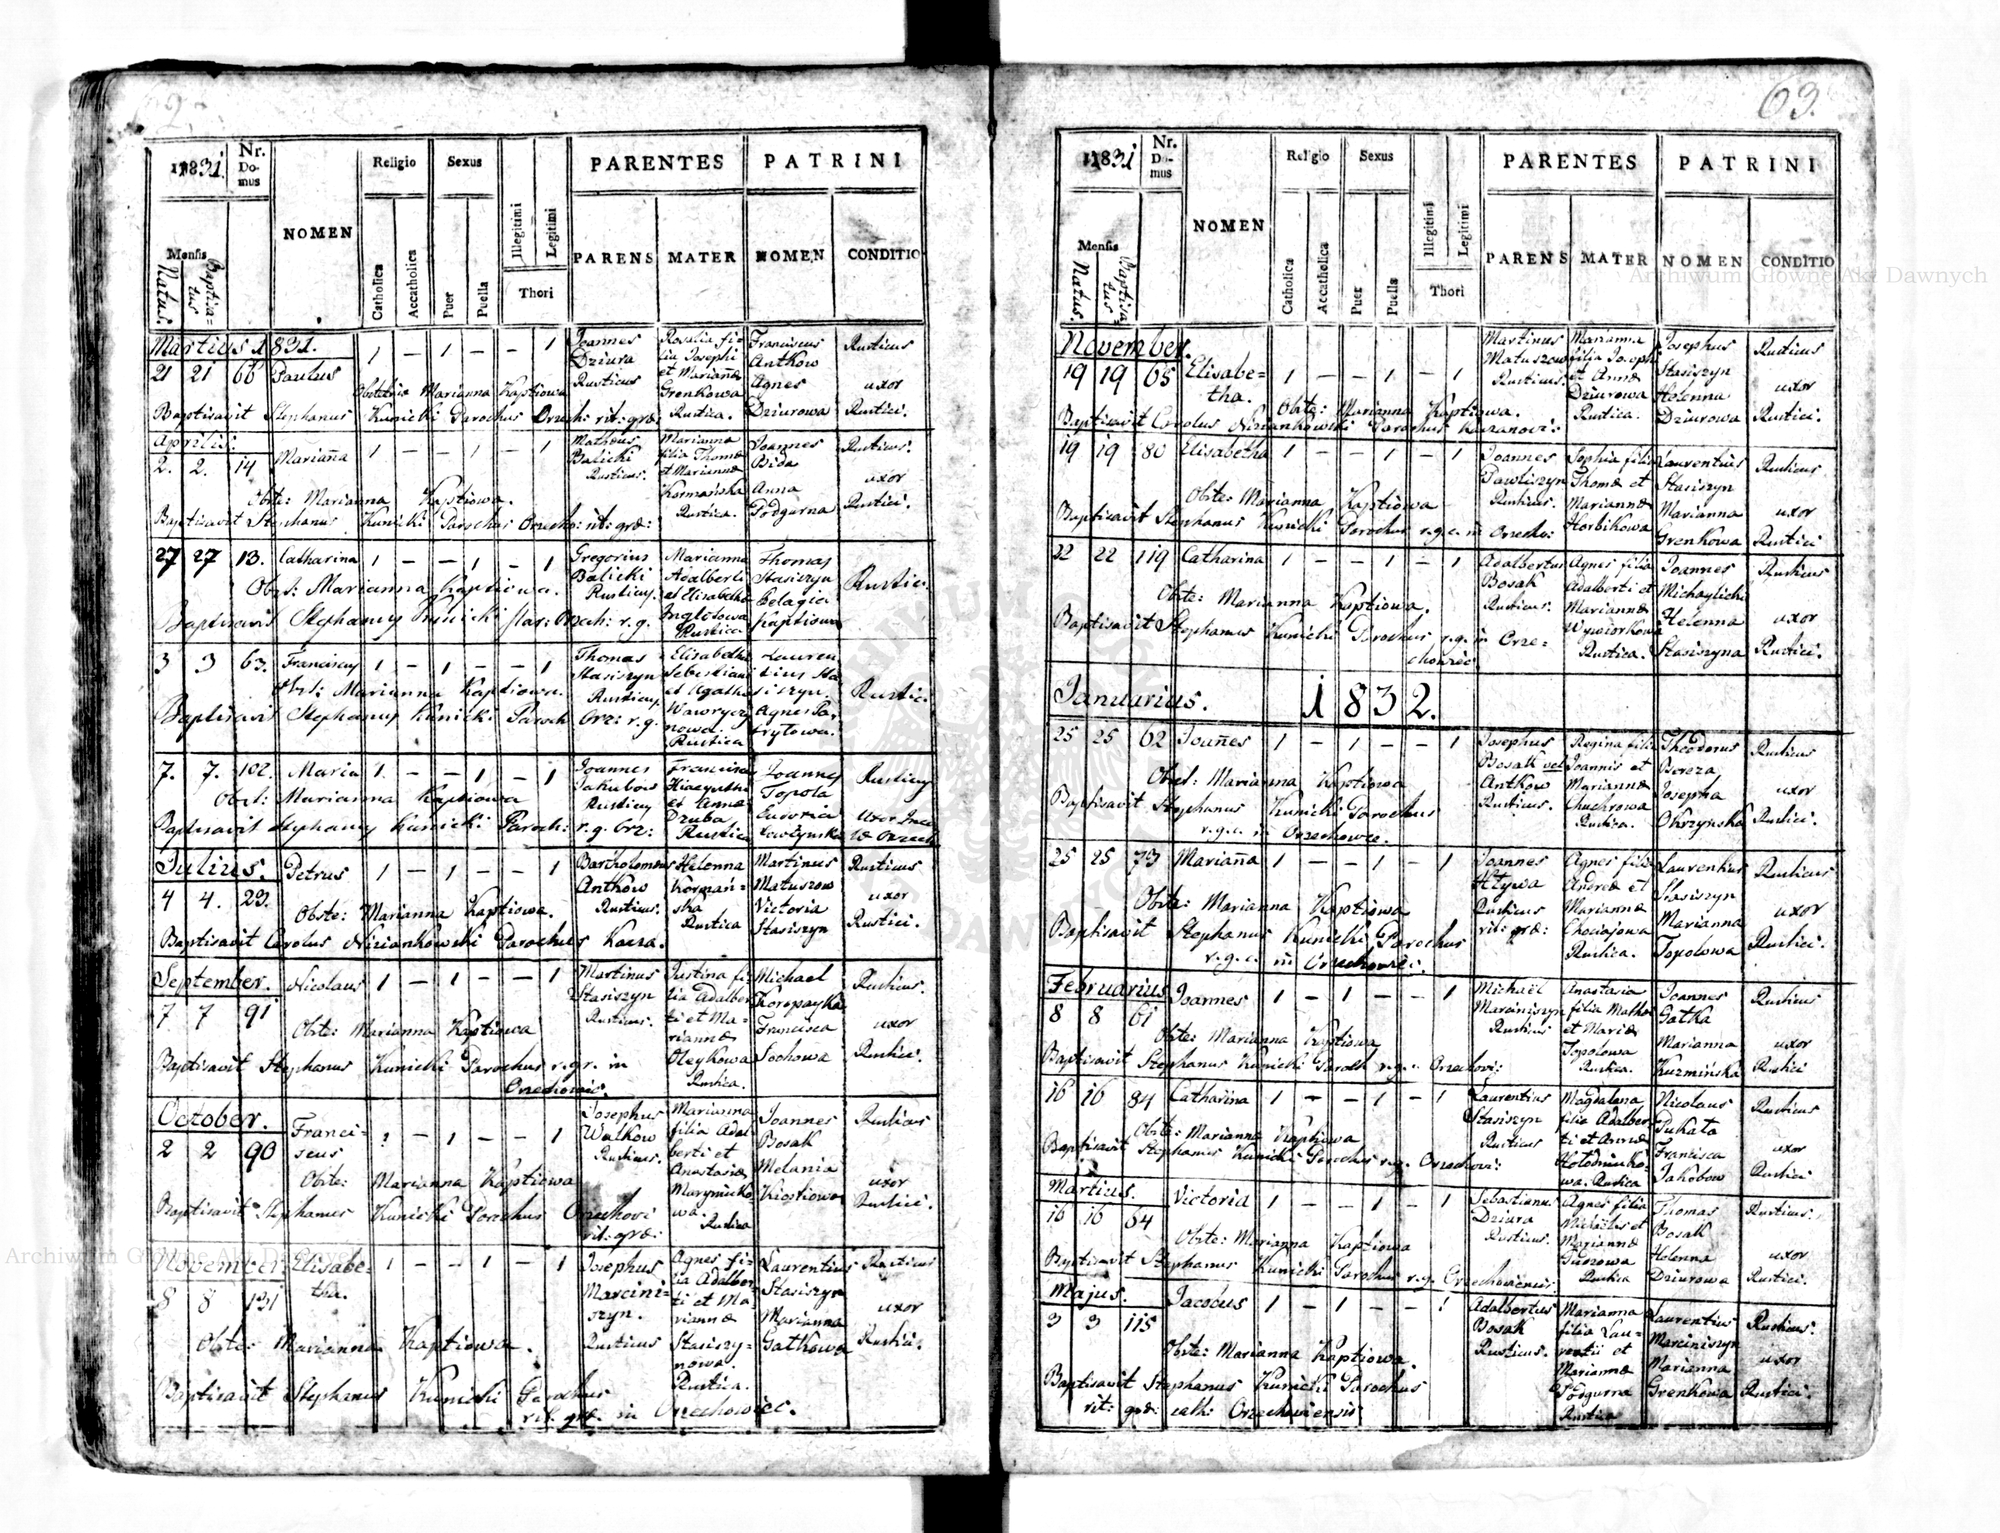 62.
1831. Nr. Domus NOMEN Religio Sexus PARENTES PATRINI
Mensis Natus. Baptisatus Catholica Accatholica Puer Puella Illegitimi Legitimi Thori PARENS MATER NOMEN CONDITIO
Martius 1831.
21 21 66 Paulus 1 – 1 – – 1
Joannes Dziura Rusticus
Rosalia filia Josephi et Mariannæ Grenkowa Rustica.
Franciscus Antkow Agnes Dziurowa
Rusticus uxor Rustici.
Obstetrix Marianna Kaptiowa
Baptisavit Stephanus Kunicki Parochus Orzech: rit: græ:
Aprilis.
2. 2. 14 Mariañа 1 – – 1 – 1
Matheus Balicki Rusticus.
Marianna filia Thomæ et Mariannæ Kormańska Rustica.
Joannes Bida Anna Podgurna
Rusticus. uxor Rustici.
Obste: Marianna Kaptiowa.
Baptisavit Stephanus Kunicki Parochus Orzecho: rit: græ:
27 27 13. Catharina 1 – – 1 – 1
Gregorius Balicki Rusticus.
Marianna Adalberti et Elisabethæ Rustica
Thomas Stasiszyn Pelagia Kaptiowa
Rustici.
Obst: Marianna Kaptiowa.
Baptisavit Stephanus Kunicki Par: Orzech: r. g.
3 3 63. Franciscus 1 – 1 – – 1
Thomas Stasiszyn Rusticus
Elisabetha Sebastiani et Agathæ Rustica
Laurentius Stasiszyn. Agnes
Rustic.
Obst: Marianna Kaptiowa.
Baptisavit Stephanus Kunicki Paroch Orz: r. g.
7. 7. 102. Maria 1. – – 1 – 1
Joannes Jakubow Rusticus
Hiacynthi et Anna Dzuba Rustica
Joannes Topola
Rusticus
Obst: Marianna Kaptiowa
Baptisavit Stephanus Kunicki Paroch: r. g. Orz:
Julius.
4 4. 23. Petrus 1 – 1 – – 1
Bartholomeus Antkow Rusticus.
Helenna Kormańska Rustica
Martinus Matuszow Victoria Stasiszyn
Rusticus uxor Rustici.
Obste: Marianna Kaptiowa.
Baptisavit Carolus Niziankowski Parochus Koza.
September.
7 7 91 Nicolaus 1 – 1 – – 1
Martinus Stasiszyn Rusticus.
Justina filia Adalberti et Mariannæ Oleykowa Rustica.
Michael Koropayka Francisca Sochowa
Rusticus. uxor Rustici.
Obste: Marianna Kaptiowa
Baptisavit Stephanus Kunicki Parochus r. gr. in Orzechowiec.
October.
2 2 90 Franciscus 1 – 1 – – 1
Josephus Walkow Rusticus.
Marianna filia Adalberti et Anastasiæ Maryniukowa. Rustica
Joannes Bosak Melania
Rusticus uxor Rustici.
Obste: Marianna Kaptiowa
Baptisavit Stephanus Kunicki Parochus Orzechovi rit: græ:
November.
8 8 131 Elisabetha. 1 – – 1 – 1
Josephus Marciniszyn. Rusticus
Agnes filia Adalberti et Mariannæ Stasiszynowa. Rustica.
Laurentius Stasiszyn Marianna Gatkowa
Rusticus uxor Rustici.
Obste: Marianna Kaptiowa.
Baptisavit Stephanus Kunicki Parochus rit. græ. in Orzechowiec.
63.
1831 Nr. Domus NOMEN Religio Sexus PARENTES PATRINI
Mensis Natus. Baptisatus Catholica Accatholica Puer Puella Illegitimi Legitimi Thori PARENS MATER NOMEN CONDITIO
November.
19 19 65 Elisabetha. 1 – – 1 – 1
Martinus Matuszow Rusticus.
Marianna filia Josephi et Annæ Dziurowa Rustica.
Josephus Stasiszyn Helenna Dziurowa
Rusticus uxor Rustici.
Obste: Marianna Kaptiowa.
Baptisavit Carolus Niziankowski Parochus Kozanovi:
19 19 80 Elisabetha 1 – – 1 – 1
Joannes Pawliszyn Rusticus.
Sophia filia Thomæ et Mariannæ Horbikowa.
Laurentius Stasiszyn Marianna Grenkowa
Rusticus uxor Rustici
Obste: Marianna Kaptiowa
Baptisavit Stephanus Kunicki Parochus r. g. c. in Orzecho:
22 22 119 Catharina 1 – – 1 – 1
Adalbertus Bosak Rusticus.
Agnes filia Adalberti et Mariannæ Wywiorkowa Rustica.
Joannes Michaylicki Helenna Stasiszyna
Rusticus uxor Rustici.
Obste: Marianna Kaptiowa.
Baptisavit Stephanus Kunicki Parochus r. g. in Orzechowiec
Januarius. 1832.
25 25 62 Joañes 1 – 1 – – 1
Josephus Bosak vel Antkow Rusticus.
Regina filia Joannis et Mariannæ Chuchrowa Rustica.
Theodorus Bereza Josepha Okrzynska
Rusticus uxor Rustici.
Obst: Marianna Kaptiowa
Baptisavit Stephanus Kunicki Parochus r. g. c. in Orzechowce.
25 25 73 Mariañа 1 – – 1 – 1
Joannes Hlywa Rusticus rit: græ:
Agnes filia Andreæ et Mariannæ Chociajowa Rustica.
Laurentius Stasiszyn Marianna Topolowa
Rusticus uxor Rustici.
Obste: Marianna Kaptiowa
Baptisavit Stephanus Kunicki Parochus r. g. c. in Orzechowec.
Februarius
8 8 61 Joannes 1 – 1 – – 1
Michaël Marciniszyn Rusticus
Anastasia filia Mathei et Mariæ Topolowa Rustica.
Joannes Gatka Marianna Kuzmińska
Rusticus uxor Rustici
Obste: Marianna Kaptiowa
Baptisavit Stephanus Kunicki Paroch r. g. c. Orzechovi:
16 16 84 Catharina 1 – – 1 – 1
Laurentius Stasiszyn Rusticus
Magdalena filia Adalberti et Annæ Hołodniukowa. Rustica
Nicolaus Pukała Francisca Jakobow
Rusticus uxor Rustici
Obste: Marianna Kaptiowa
Baptisavit Stephanus Kunicki Parochus r. g. Orzechovi:
Martius.
16 16 64 Victoria 1 – – 1 – 1
Sebastianus Dziura Rusticus.
Agnes filia Michaëlis et Mariannæ Guzowa Rustica
Thomas Bosak Helenna Dziurowa
Rusticus. uxor Rustici.
Obste: Marianna Kaptiowa
Baptisavit Stephanus Kunicki Parochus r. g. Orzechoviensis
Majus.
3 3 115 Jacobus 1 – 1 – – 1
Adalbertus Bosak Rusticus.
Marianna filia Laurentii et Mariannæ Podgurna Rustica
Laurentius Marciniszyn Marianna Grenkowa
Rusticus. uxor Rustici.
Obste: Marianna Kaptiowa.
Baptisavit Stephanus Kunicki Parochus rit: græ: cath: Orzechoviensis
Archiwum Główne Akt Dawnych
Archiwum Główne Akt Dawnych